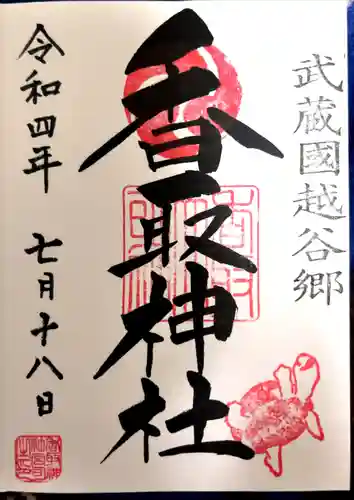 武蔵國越谷郷
香取神社
令和四年 七月十八日